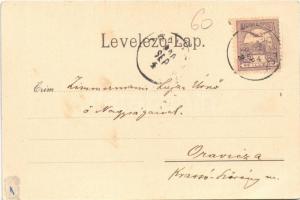 60
Levelező-Lap.
Czim: Zimmermann Lujza Urnő
ő Nagyságának.
Oravicza
Krassó-Szörény m.